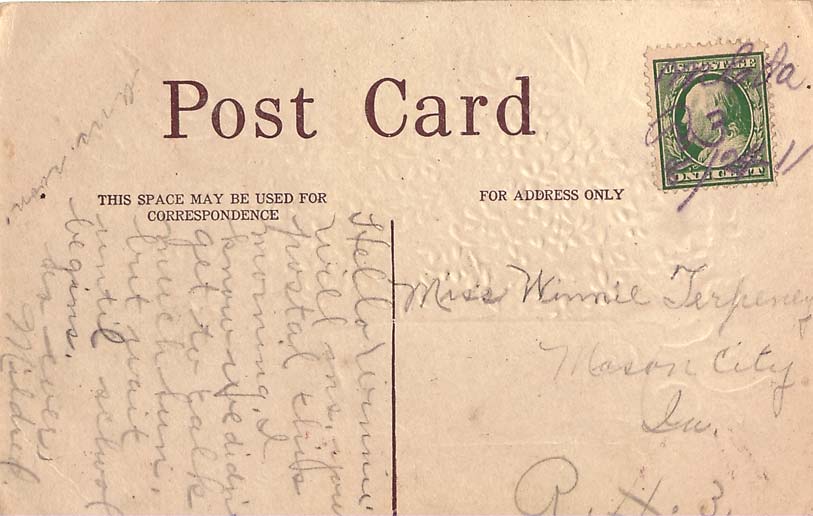 Post Card
THIS SPACE MAY BE USED FOR
CORRESPONDENCE
FOR ADDRESS ONLY
U.S. POSTAGE
ONE CENT
Ia
Miss Winnie Terpeney
Mason City
Ia.
Hello Winnie'
will ans. you
postal this
morning. I
know we didn't
get to talk
much Sun.
but wait
until school
begins.
As ever,
Mildred.
soon.